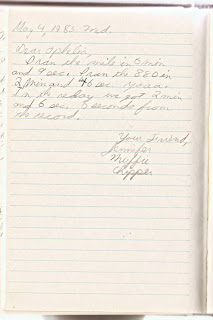 May 4, 1983 2nd.
Dear Ophelia,
I ran the mile in 5 min
and 9 sec. I ran the 880 in
2 min and 46 sec.
In the relay we got 2 min
and 6 sec. 5 seconds from
the record.
Your friend,
Jennifer
Muffie
Chipper